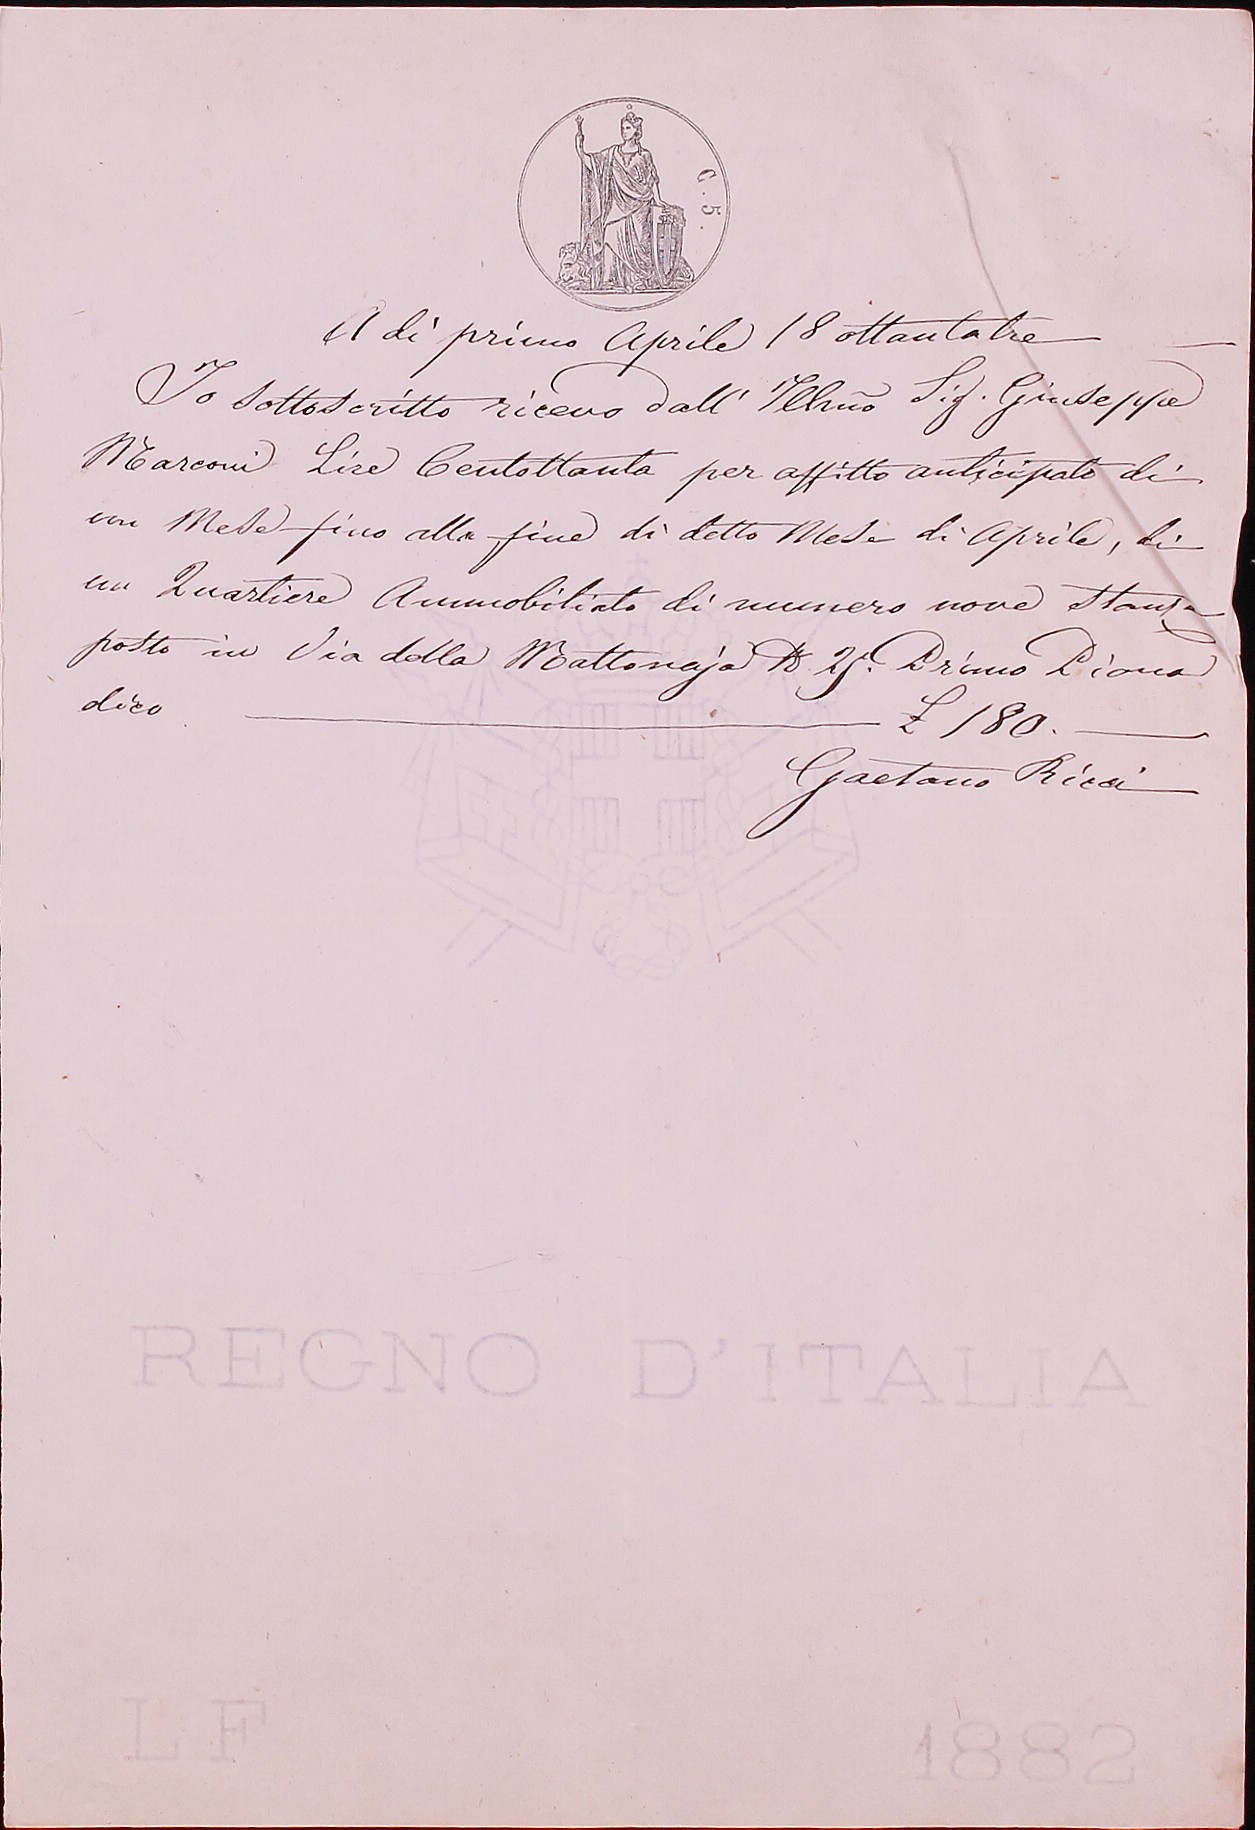 C. 5.
A di primo Aprile 18 ottantatre
Io Sottoscritto ricevo dall' Illmo Sig. Giuseppe
Marconi Lire Centottanta per affitto anticipato di
un Mese fino alla fine di detto Mese di Aprile, di
un Quartiere Ammobiliato di numero nove stanze
posto in Via della Mattonaja N. 25. Primo Piano
dico £ 180.
Gaetano Ricci
REGNO D'ITALIA
LF 1882